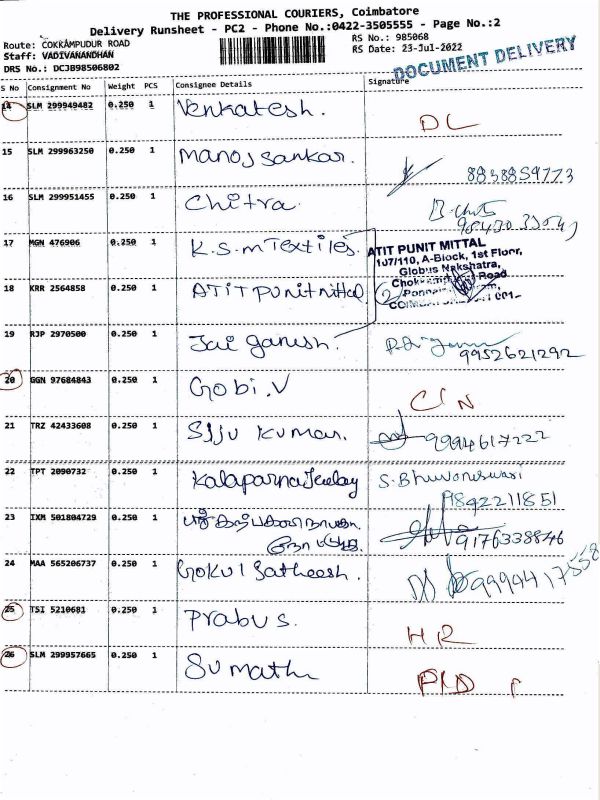 THE PROFESSIONAL COURIERS, Coimbatore
Delivery Runsheet - PC2 - Phone No.:0422-3505555 - Page No.:2
Route: COKKAMPUDUR ROAD
RS No.: 985068
Staff: VADIVANANDHAN
RS Date: 23-Jul-2022
DRS No.: DCJB98506802
DOCUMENT DELIVERY
S No Consignment No Weight PCS Consignee Details Signature
14 SLM 299949482 0.250 1 Venkatesh. DL
15 SLM 299963250 0.250 1 Manoj Sankar. 8838859773
16 SLM 299951455 0.250 1 Chitra
17 MGN 476906 0.250 1 K.S.M Textiles.
ATIT PUNIT MITTAL
107/110, A-Block, 1st Floor,
Globus Nakshatra,
Road
18 KRR 2564858 0.250 1 ATIT Punit mittal 2
19 RJP 2970500 0.250 1 Jai ganesh. 9952621292
20 GGN 97684843 0.250 1 Gobi.V C/N
21 TRZ 42433608 0.250 1 Sijju Kumar. 9994617222
22 TPT 2090732 0.250 1 Kalaparna S. Bhuvaneswari
9842211851
23 IXM 501804729 0.250 1 9176338846
24 MAA 565206737 0.250 1 Gokul Satheesh. 9994417558
25 TSI 5210681 0.250 1 Prabu S. HR
26 SLM 299957665 0.250 1 Sumathi